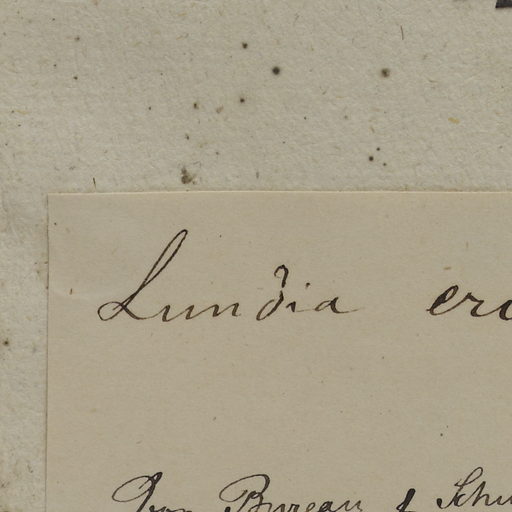 Lundia ero
Bureau f. Schu